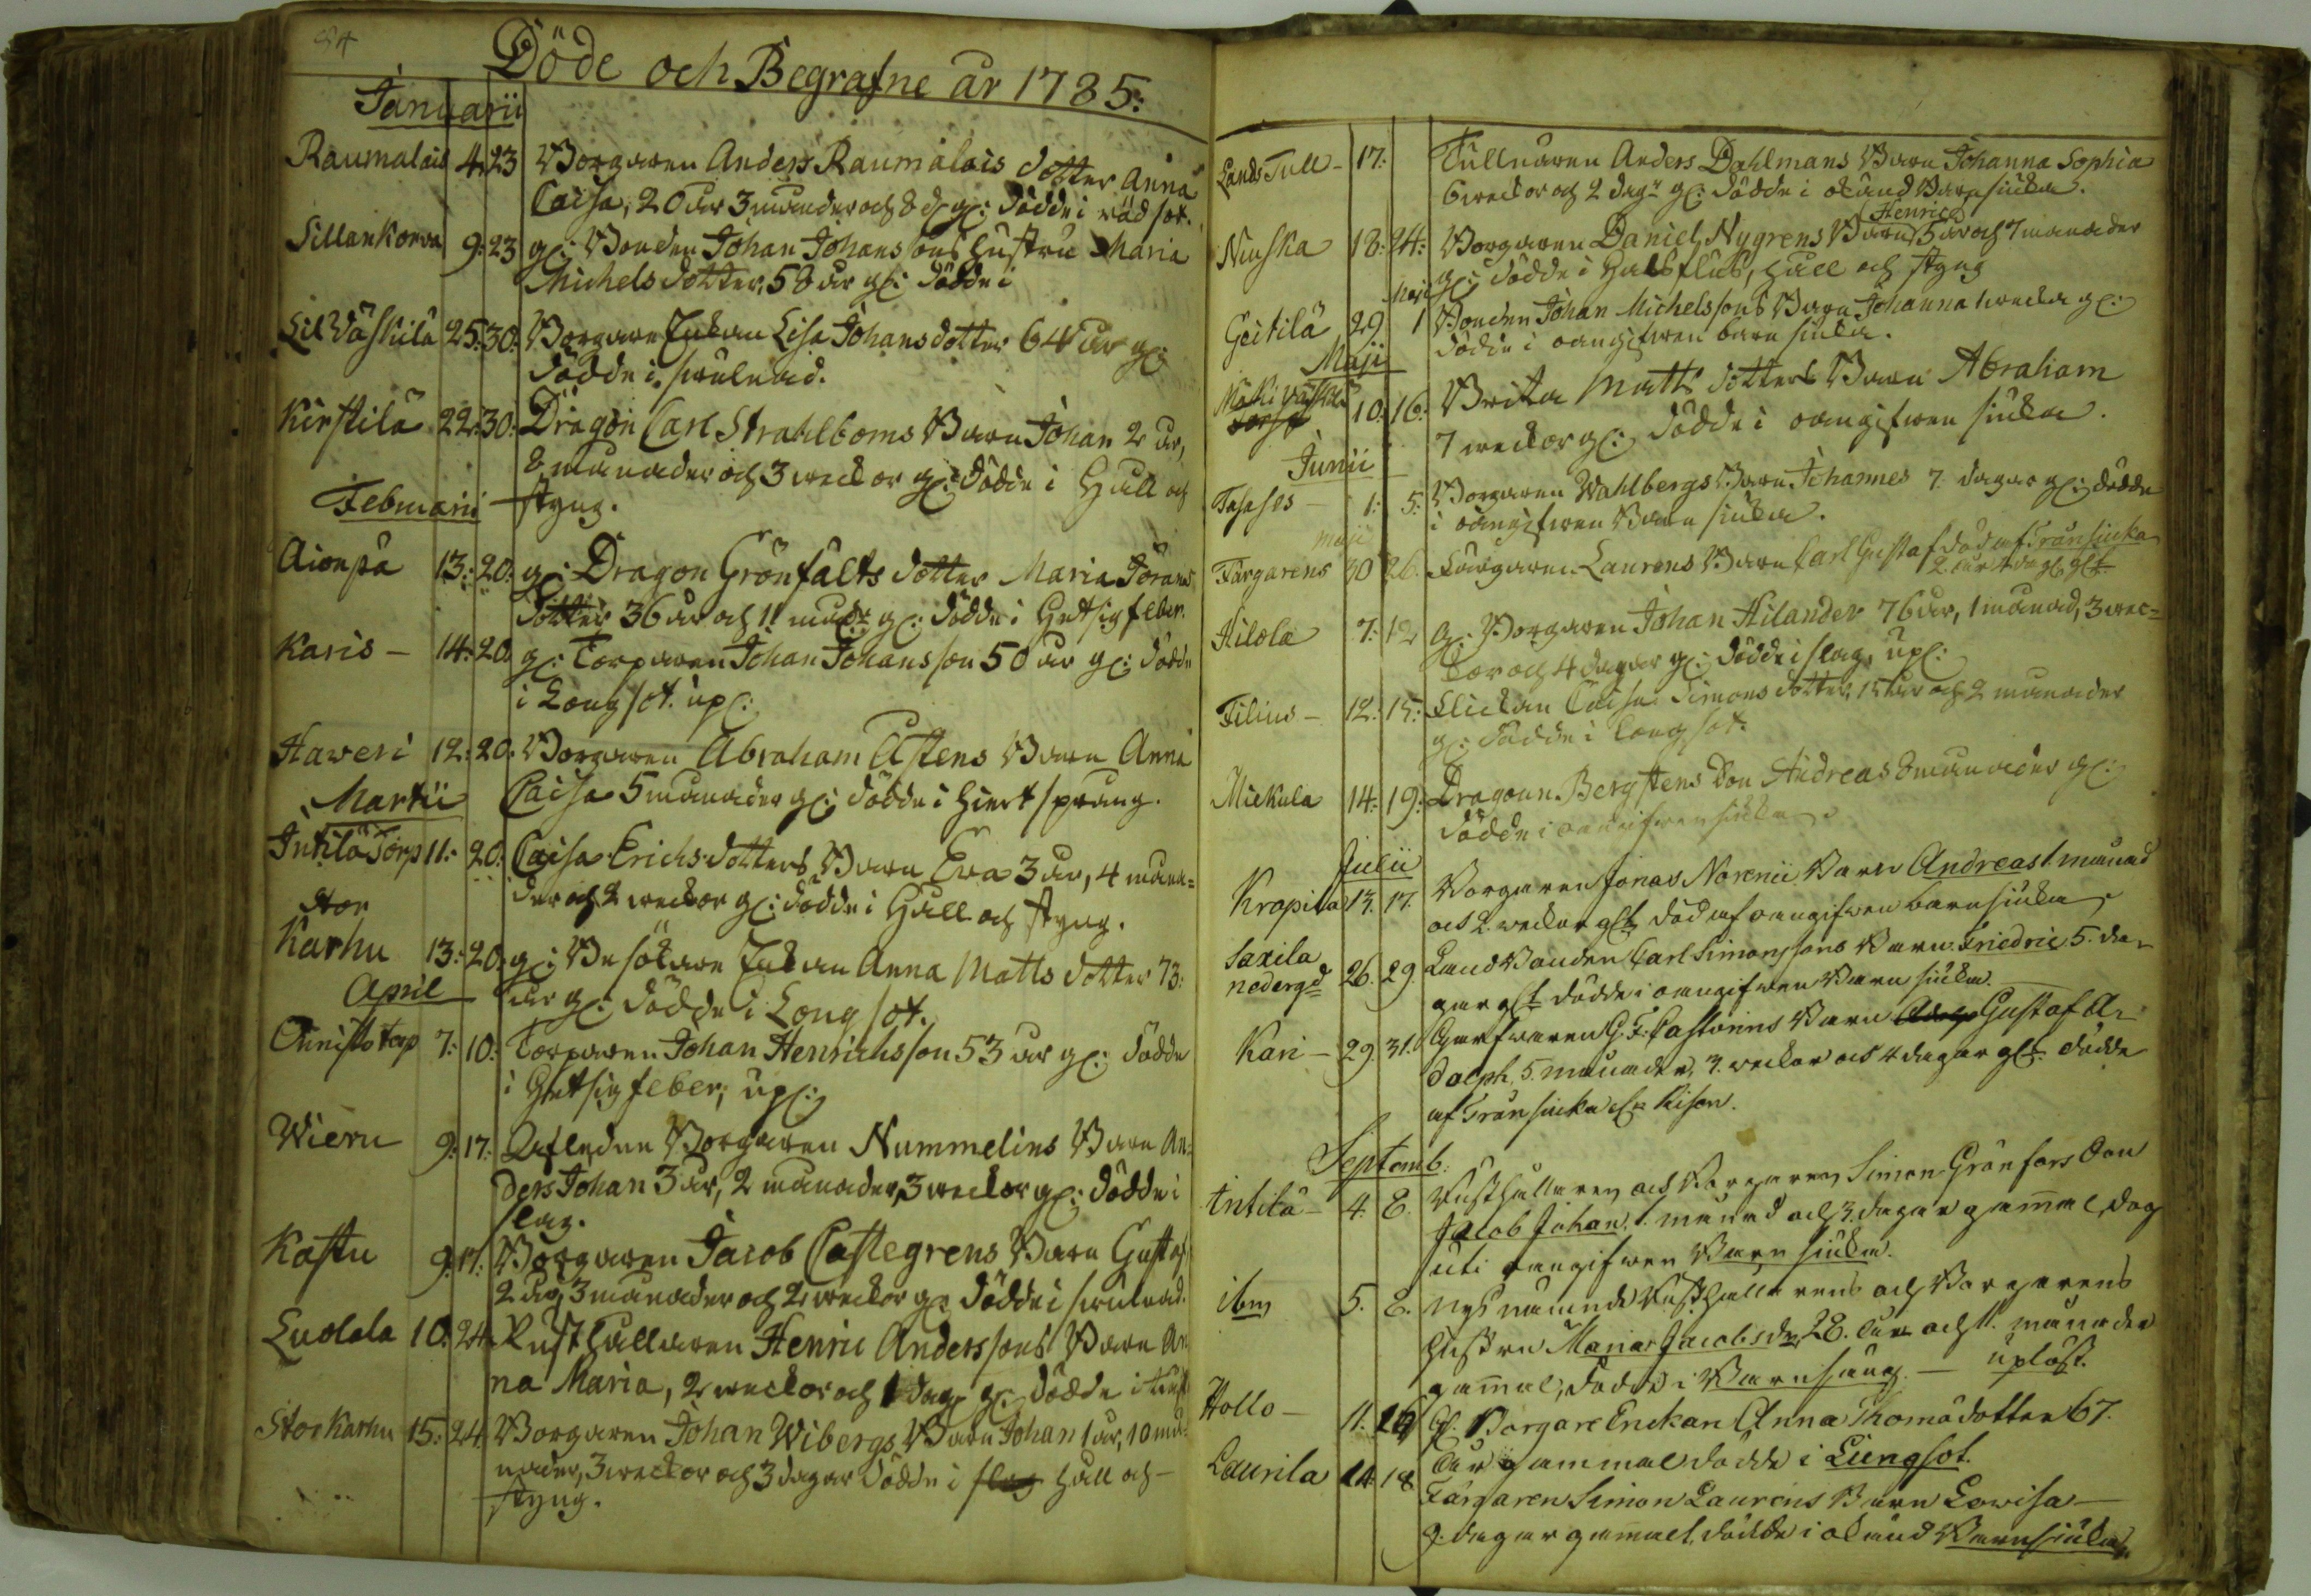 84
Döde och Begrafne år 1785:
Januarii
Raumalais 4. 23 Borgaren Anders Raumalais dotter Anna
Caisa, 20 år 3 månader och 8 d. gl: dödde i röd sot.
Sillankorva 9: 23 gl: Bonden Johan Johanssons hustru Maria
Michelsdotter, 58 år gl: dödde i
Lill Väskilä 25: 30: Borgare Enkan Lisa Johansdotter 64 år gl:
dödde i swulnad.
Kirstilä 22: 30: Dragon Carl Strahlboms Barn Johan 2 år,
8 månader och 3 weckor gl: dödde i Håll och
styng.
Februarii
13: 20: gl: Dragon Grönfälts dotter Maria Jörans
dotter 36 år och 11 mndr gl: dödde i Hetsig feber.
Karis - 14: 20. gl: Torparen Johan Johansson 50 år gl: dödde
i Lungsot. upl:
Haveri 12: 20. Borgaren Abraham Astens Barn Anna
Caisa 5 månader gl: dödde i Hiertsprång.
Martii
Intilä Torp 11: 20: Caisa Erichsdotters Barn Eva 3 år, 4 måna=
der och 2 weckor gl: dödde i Håll och styng.
Stor
Karhu 13: 20. gl: Besökare Enkan Anna Mattsdotter 73:
år gl: dödde i Lungsot.
April
7: 10: Torparen Johan Henrichsson 53 år gl: dödde
i Hetsig feber; upl:
Wieru 9: 17: Afledne Borgaren Nummelins Barn An=
ders Johan 3 år, 2 månader, 3 weckor gl: dödde i
slag.
Kastu 9. 17. Borgaren Jacob Castegrens Barn Gustaf
2 år, 3 månader och 2 weckor gl: dödde i swulnad.
Ludola 10. 24. Rusthållaren Henric Anderssons Barn An
na Maria, 2 weckor och 1 dag gl: dödde i
Stor Karhu 15: 24. Borgaren Johan Wibergs Barn Johan 1 år, 10 må=
nader, 3 weckor och 3 dagar dödde i slag håll och -
styng.
Lands Tull - 17: Tullnären Anders Dahlmans Barn Johanna Sophia
6 weckor och 2 dagr gl: dödde i okänd Barnsiuka.
Henric
Nuuska 18: 24: Borgaren Daniel Nygrens Barn 5 år och 7 månader
gl: dödde i Halsfluss, håll och styng
Maji
Geitilä 29. 1 Bonden Johan Michelssons Barn Johanna 1 wecka gl:
dödde i oangifwen barnsiuka.
Maji
Mäki Väskilä
10: 16: Brita Matts dotters Barn Abraham
7 weckor gl: dödde i oangifwen siuka.
Junii
1: 5: Borgaren Wahlbergs Barn Johannes 7 dagar gl: dödde
i oangifwen Barnsiuka.
maji
Färgarens 30 26. Färgaren Laurens Barn Carl Gustaf död af Trånsiuka
2 år 4 dag. glt.
Hilola 7: 12 gl: Borgaren Johan Hilander 76 år, 1 månad, 3 wec=
kor och 4 dagar gl: dödde i slag. upl:
Filius - 12: 15: Flickan Caisa Simonsdotter, 15 år och 2 månader
gl: dödde i Lungsot.
Mickula 14: 19: Dragoun Bergstens Son Andreas 8 månader gl:
dödde i oangifwen siuka.
Julii
Kropila 13. 17. Borgaren Jonas Norenii Barn Andreas 1. månad
och 2. weckor glt död af oangifwen barnsiuka
Saxila
nedergd 26. 29. Landbonden Carl Simonssons Barn Friedric 5. da-
gar glt dödde i oangifwen Barnsiuka.
Kari - 29. 31. Garfwaren G. F. Castorins Barn Adolp Gustaf A-
dolph, 5. månader, 3. weckor och 4 dagar glt. dödde
af Trånsiuka el. Risen.
Septemb.
Intilä - 4. 8. Rusthållaren och Borgaren Simon Grönfors Son
Jacob Johan, 1. månad och 3. dagar gammal, dog
uti oangifwen Barnsiuka.
ibm 5. 8. Nyss nämnde Rusthållarens och Borgarens
hustru Maria Jacobsdr 28. år och 11. månader
gammal, dödde i Barnsäng. — uplöst.
Hollo - 11. gl. Borgare Enckan Anna Thomædotter 67.
år gammal dödde i Lungsot.
Laurila 14 18 Färgaren Simon Laurens Barn Lovisa -
9. dagar gammalt, dödde i okänd Barnsiuka.